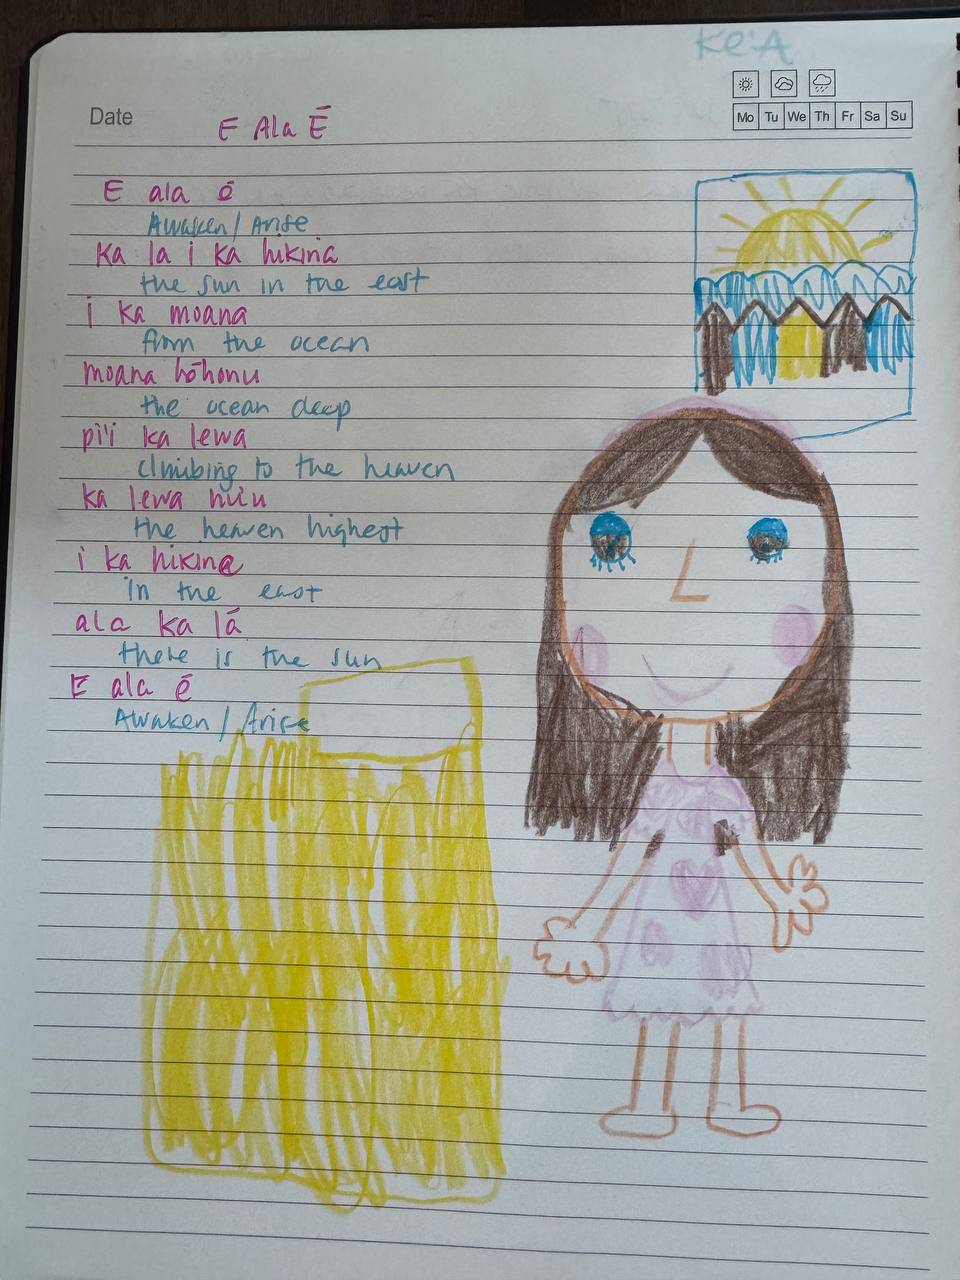 Ke'A
Date
Mo Tu We Th Fr Sa Su
E Ala Ē
E ala ē
Awaken/Arise
Ka la i ka hikina
the sun in the east
i ka moana
from the ocean
moana hōhonu
the ocean deep
pi'i ka lewa
climbing to the heaven
ka lewa nu'u
the heaven highest
i ka hikina
in the east
ala ka lā
there is the sun
E ala ē
Awaken/Arise